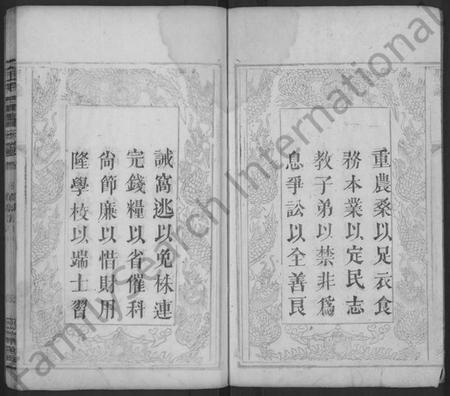 重農桑以足衣食
務本業以定民志
教子弟以禁非爲
息爭訟以全善良
誡窩逃以免株連
完錢糧以省催科
尙節廉以惜財用
隆學校以端士習
FamilySearch International